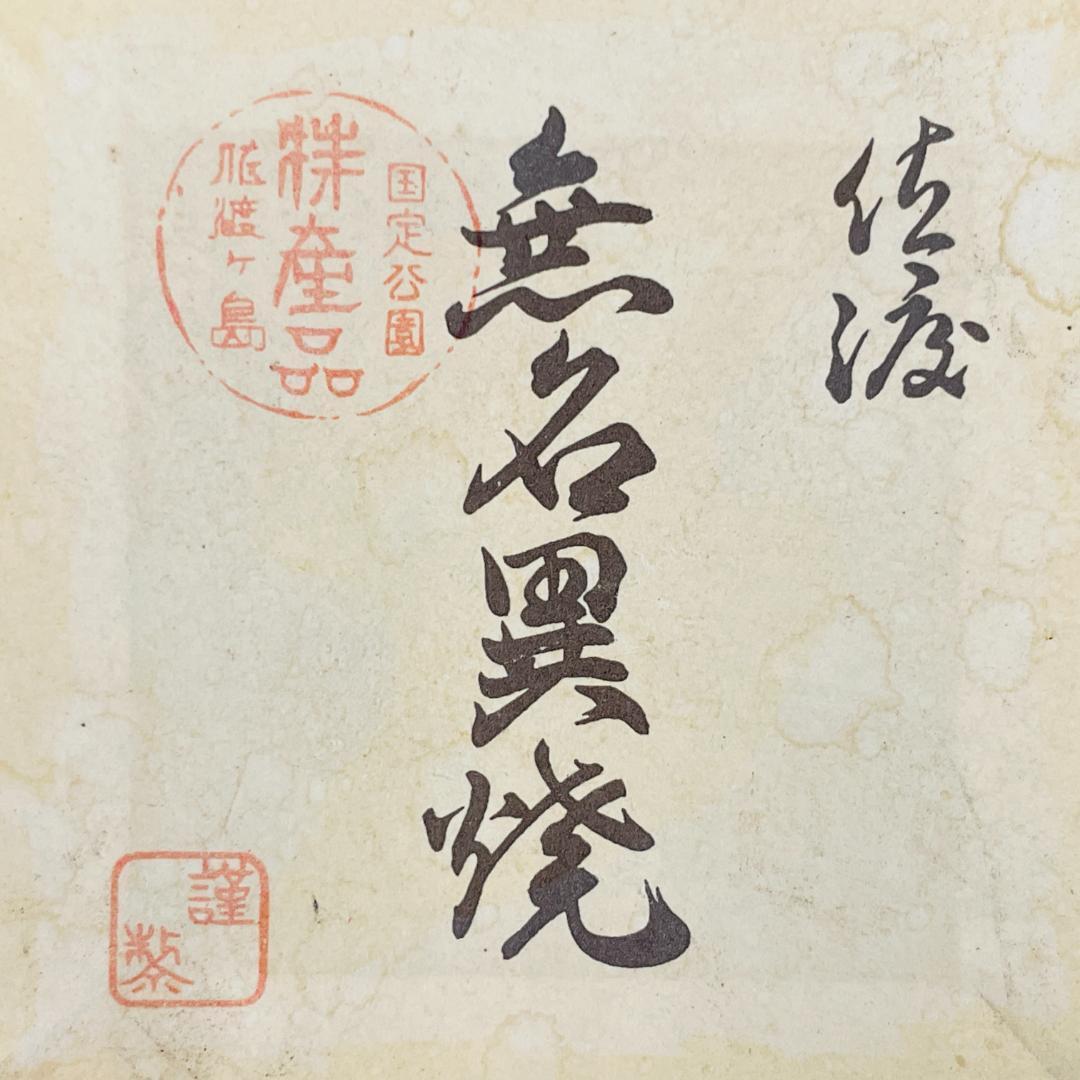 佐渡
無名異焼
国定公園
特産品
佐渡ヶ島
謹製